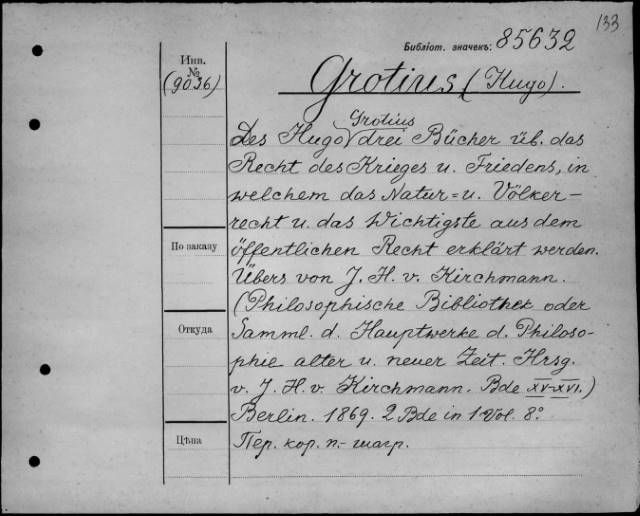 133
Библіот. значекъ: 85632
Инв.
№
(9036)
Grotius (Hugo).
Grotius
Des Hugo drei Bücher üb. das
Recht des Krieges u. Friedens, in
welchem das Natur= u. Völker-
recht u. das Wichtigste aus dem
По заказу
öffentlichen Recht erklärt werden.
Übers von J. H. v. Kirchmann.
(Philosophische Bibliothek oder
Откуда
Samml. d. Hauptwerke d. Philoso-
phie alter u. neuer Zeit. Hrsg.
v. J. H. v. Kirchmann. Bde XV-XVI.)
Berlin. 1869. 2 Bde in 1 Vol. 8º
Цѣна
Пер. кор. п.- шагр.